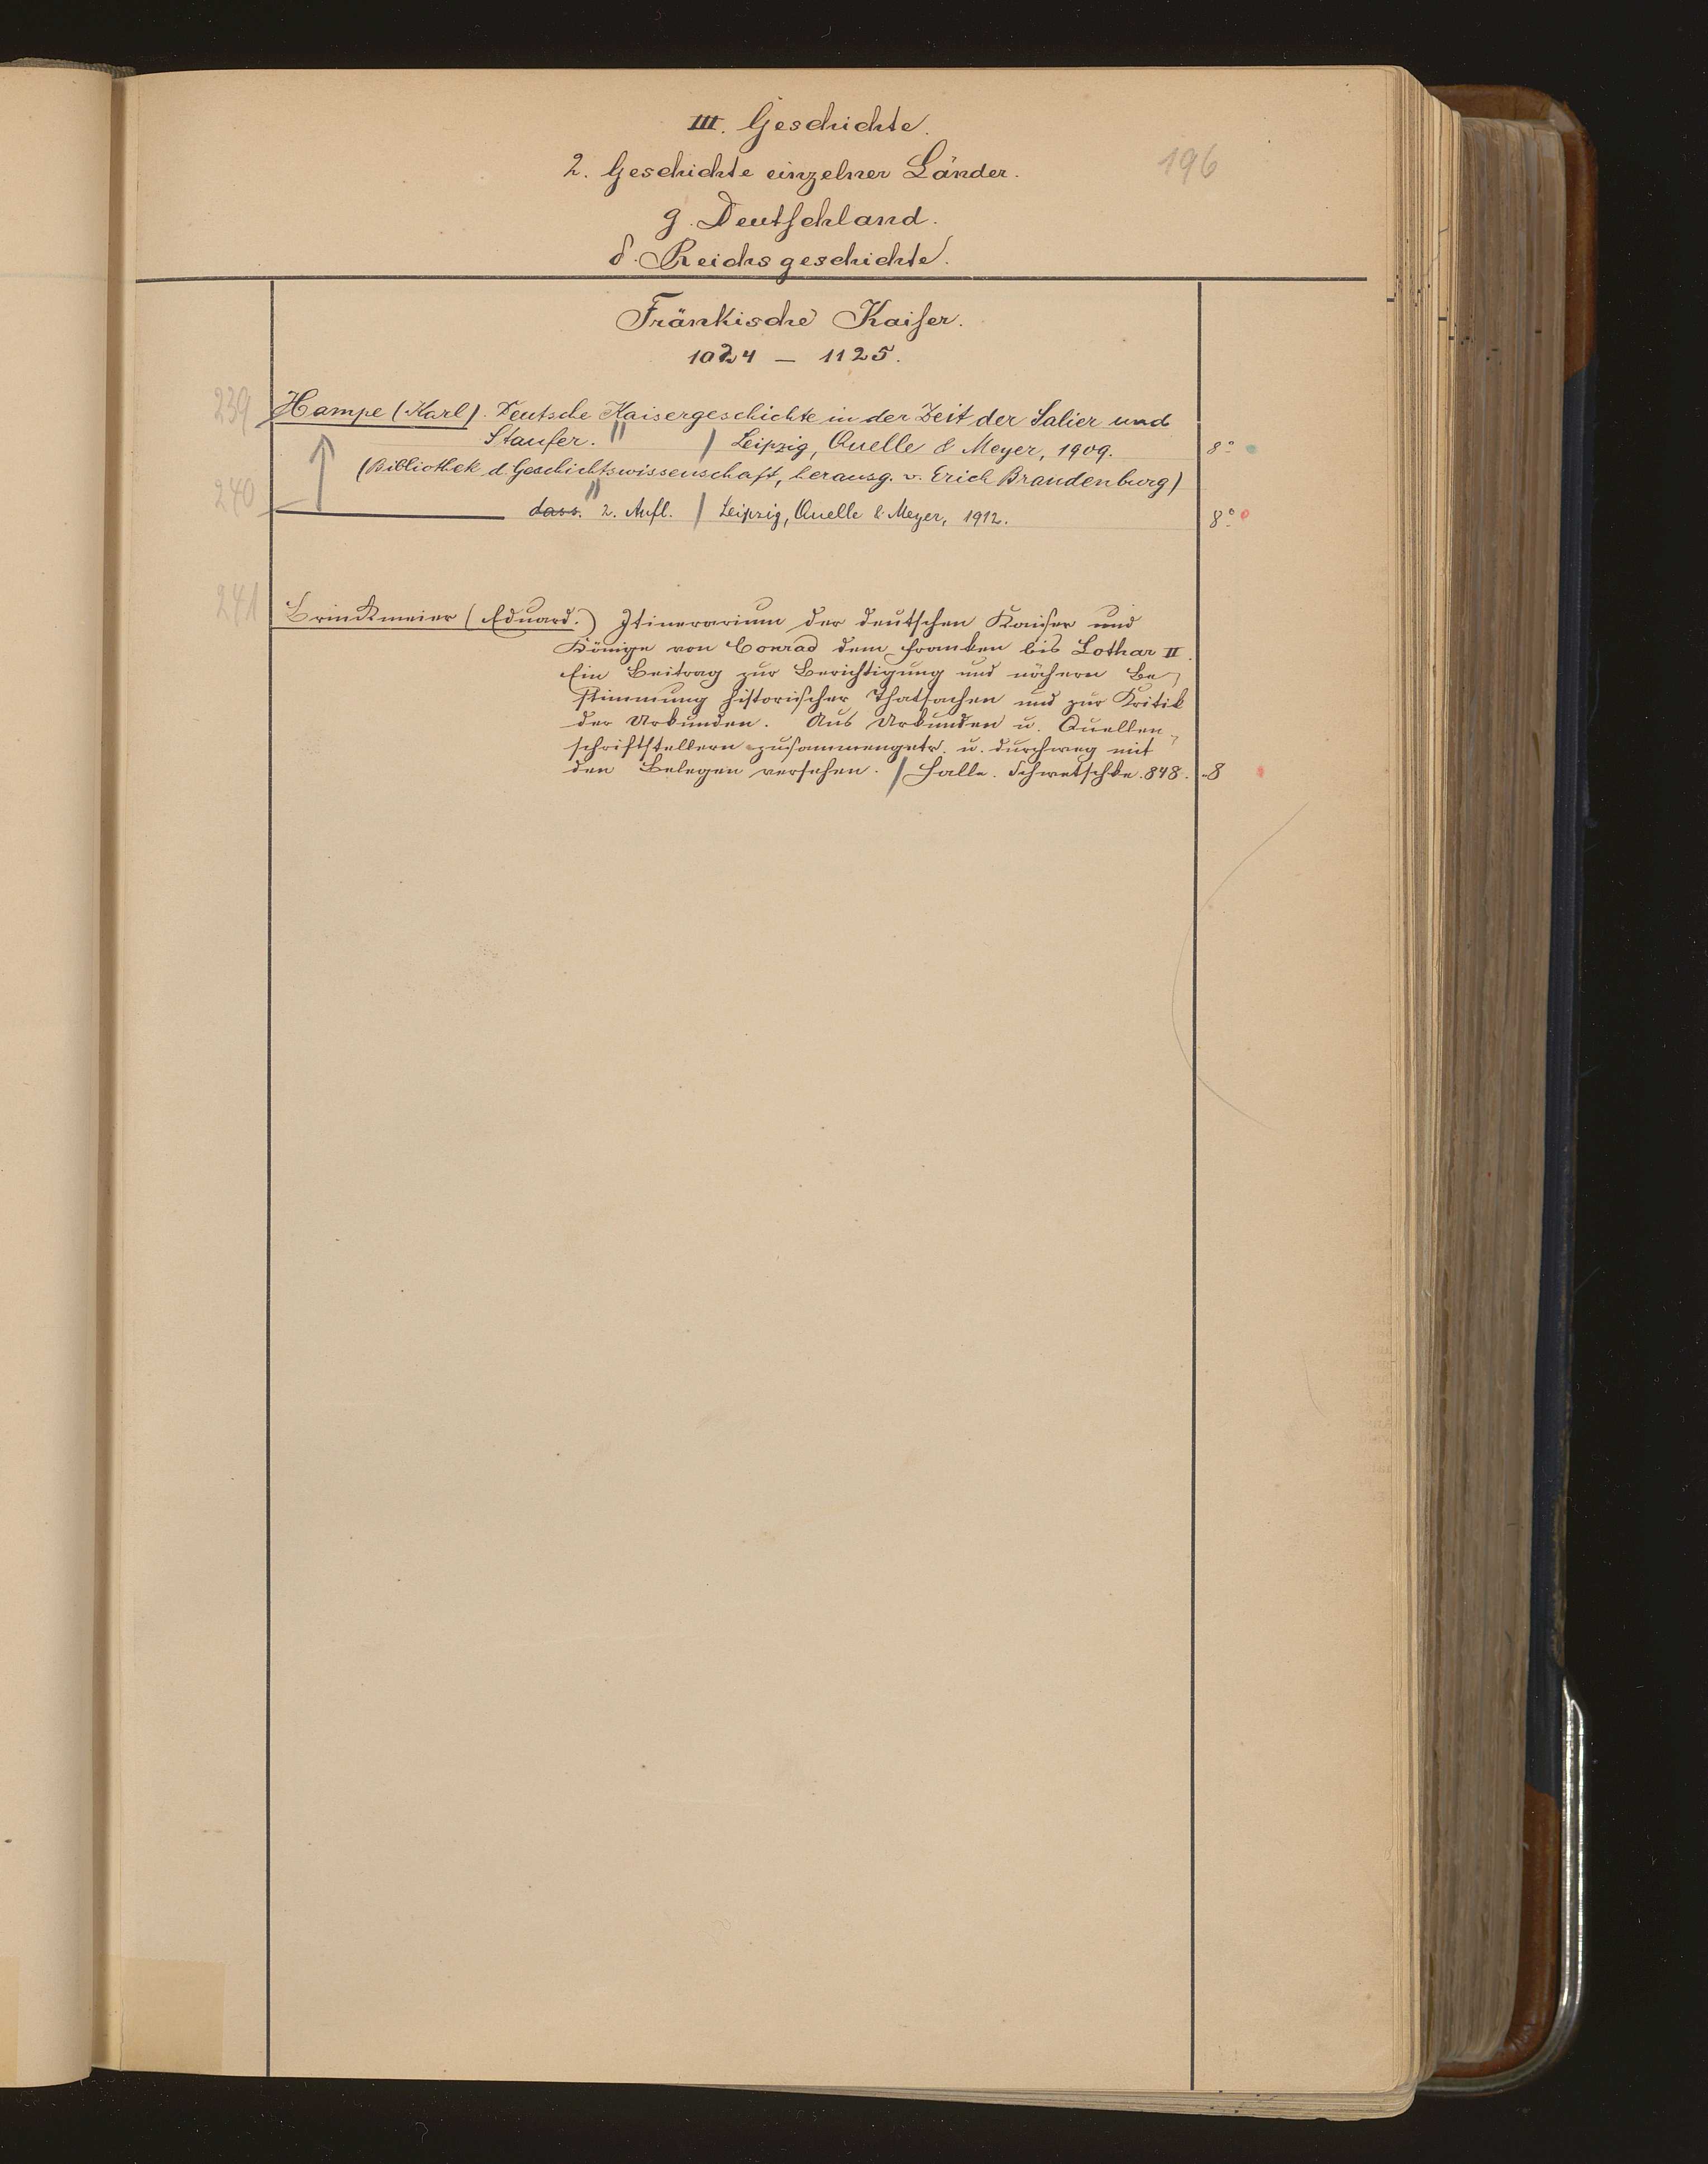 III. Geschichte.
196
2. Geschichte einzelner Länder.
g. Deutschland.
δ. Reichsgeschichte.
Fränkische Kaiser.
1024 — 1125.
239 Hampe (Karl). Deutsche Kaisergeschichte in der Zeit der Salier und
Staufer. || / Leipzig, Quelle & Meyer, 1909. 8°
(Bibliothek d. Geschichtswissenschaft, herausg. v. Erich Brandenburg)
240 ——— dass. 2. Aufl. / Leipzig, Quelle & Meyer, 1912. 8°
241 Brinckmeier (Eduard.) Itinerarium der deutschen Kaiser und
Könige von Conrad dem Franken bis Lothar II.
Ein Beitrag zur Berichtigung und nähern Be-
stimmung historischer Thatsachen und zur Kritik
der Urkunden. Aus Urkunden u. Quellen-
schriftstellern zusammengetr. u. durchweg mit
den Belegen versehen. / Halle. Schwetschke. 848. 8